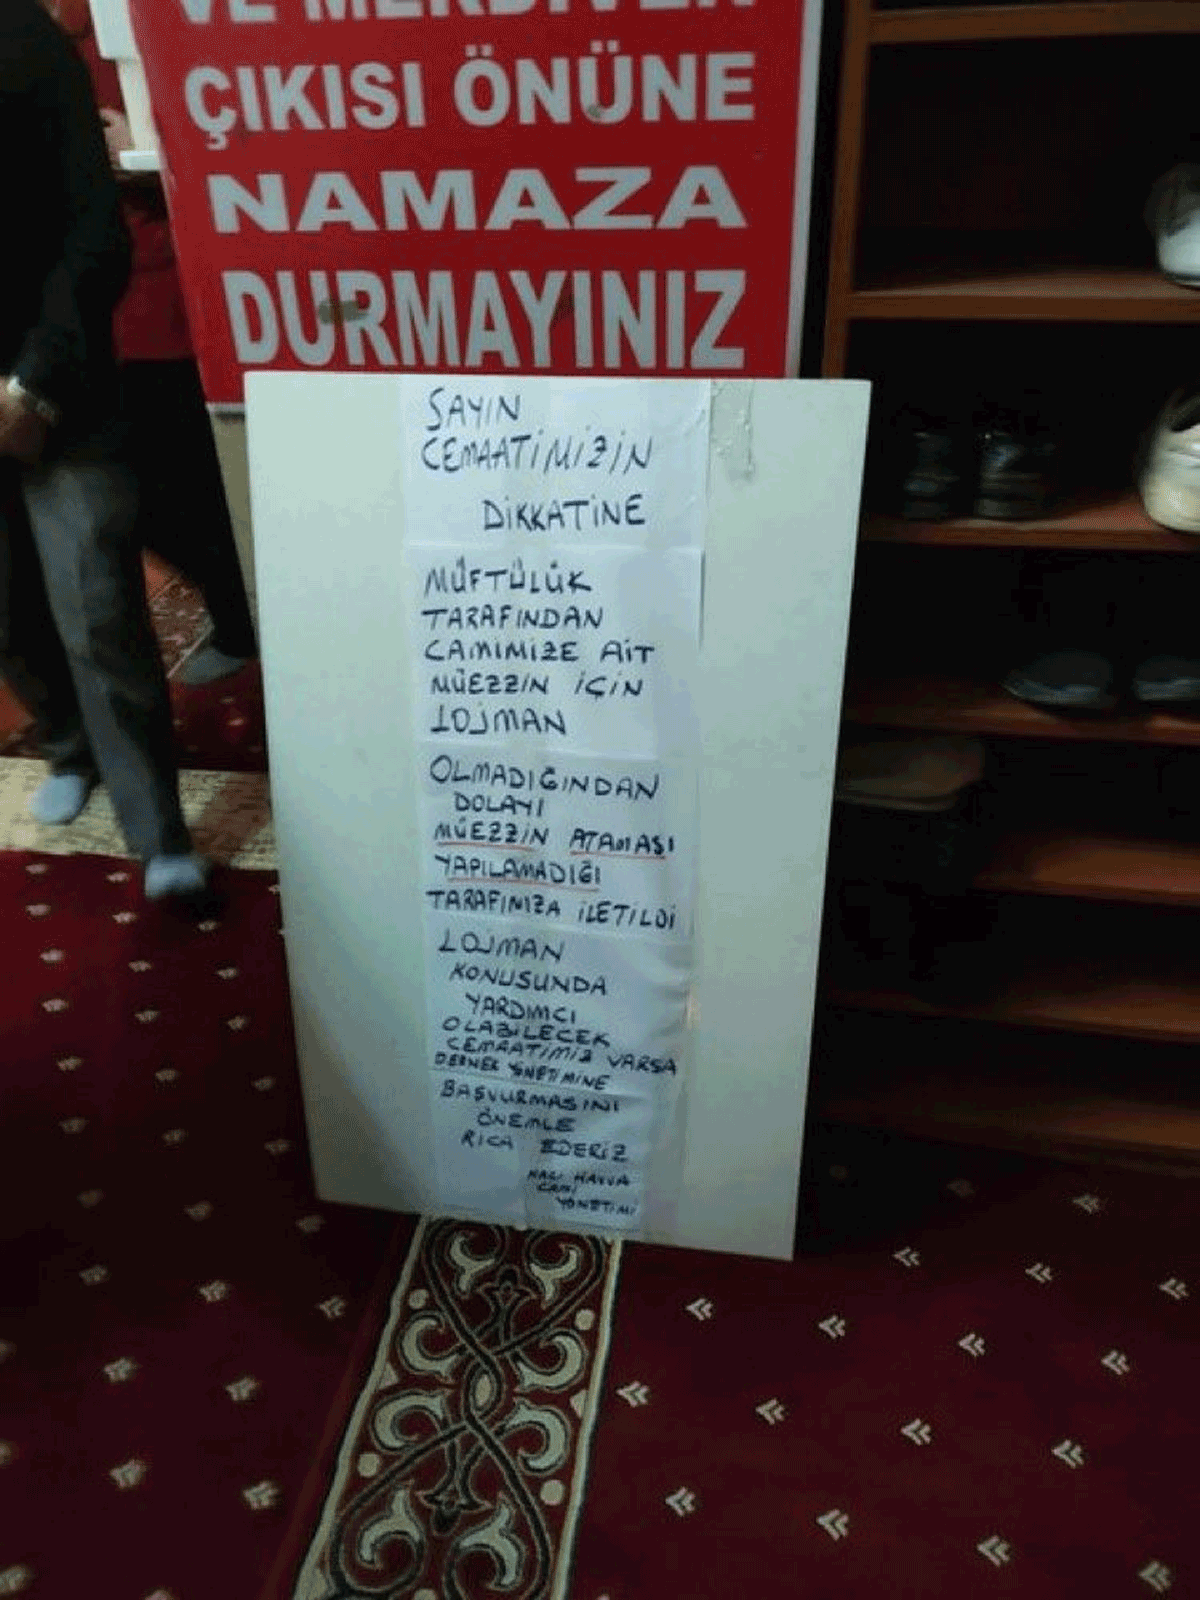 VE MERDİVEN
ÇIKISI ÖNÜNE
NAMAZA
DURMAYINIZ
SAYIN
CEMAATİMİZİN
DİKKATİNE
MÜFTÜLÜK
TARAFINDAN
CAMIMIZE AİT
MÜEZZIN İÇİN
LOJMAN
OLMADIĞINDAN
DOLAYI
MÜEZZİN ATAMASI
YAPILAMADIĞI
TARAFINIZA İLETİLDİ
LOJMAN
KONUSUNDA
YARDIMCI
OLABİLECEK
CEMAATİMİZ VARSA
DERNEK YNETİMİNE
BASVURMASINI
ÖNEMLE
RICA EDERİZ
HACI HAVVA
CAMİ
YÖNETİMİ